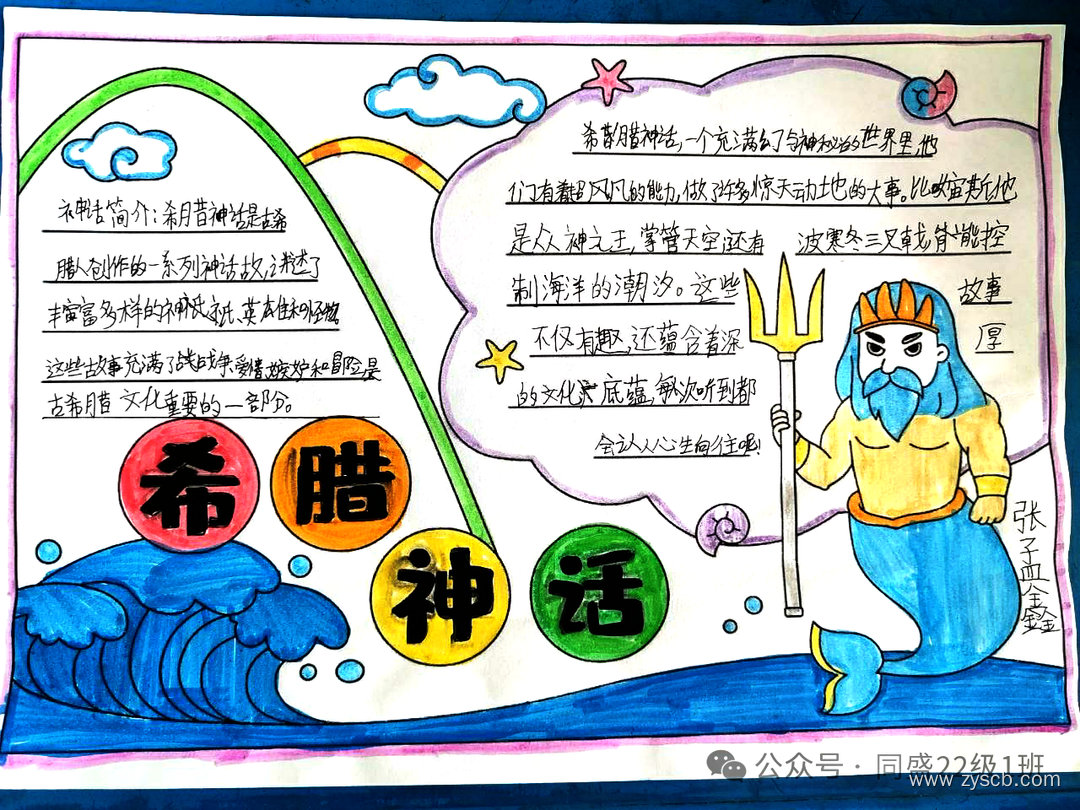 神话简介:希腊神话是古希
腊人创作的一系列神话故,讲述了
丰富多样的神氏、英雄和怪物。
这些故事充满了战争,爱情,嫉妒和冒险是
古希腊 文化重要的一部分。
希腊
神话
希腊神话,一个充满幻与神秘的世界里,他
们有着超凡的能力,做了许多惊天动地的大事。比如宙斯他
是众神之王,掌管天空,还有 波塞冬三叉戟,能控
制海洋的潮汐。这些 故事
不仅有趣,还蕴含着深 厚
的文化 底蕴,每次听到都
会让人心生向往呢!
张子鑫
公众号·同盛22级1班
www.zyscb.com